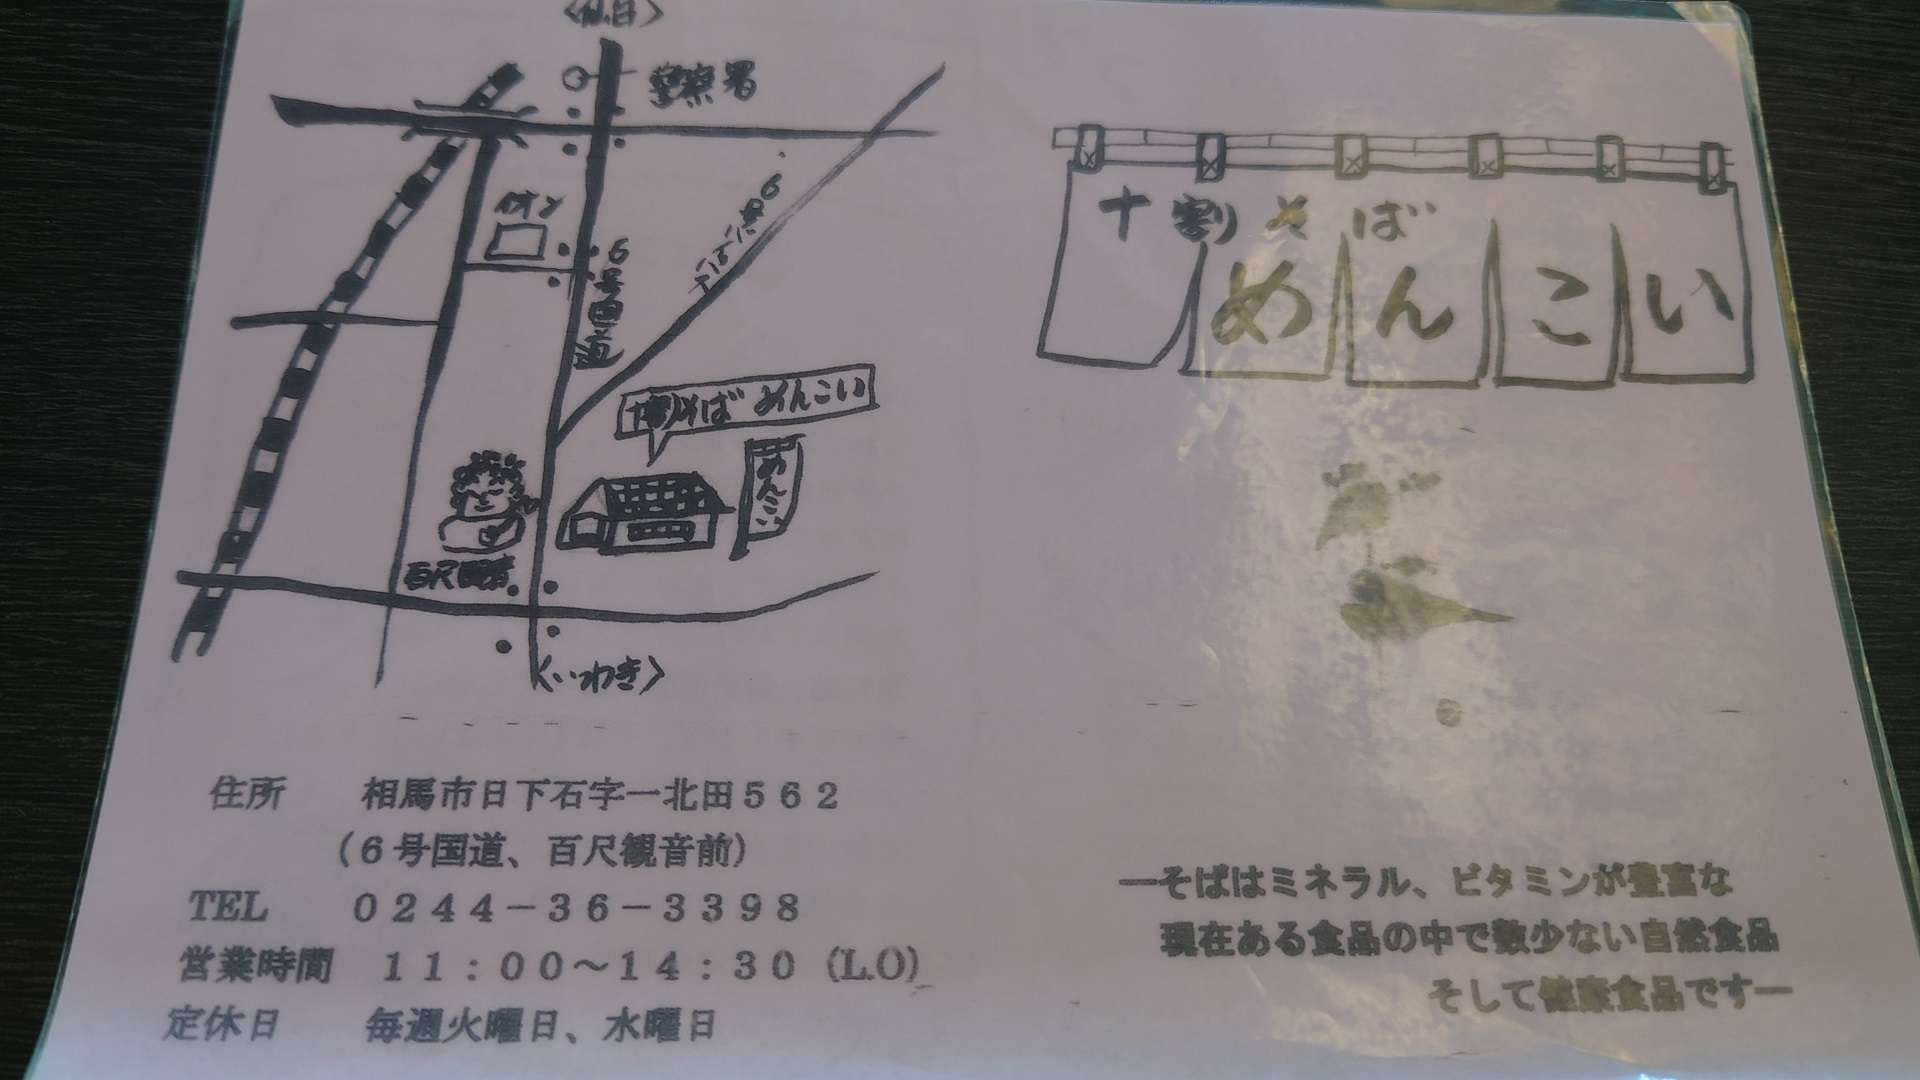 〈仙台〉
警察署
イオン
6号バイパス
6号国道
十割そば めんこい
めんこい
百尺観音
〈いわき〉
住所 相馬市日下石字一北田562
(6号国道、百尺観音前)
TEL 0244-36-3398
営業時間 11:00~14:30 (L.O)
定休日 毎週火曜日、水曜日
十割そば
めんこい
―そばはミネラル、ビタミンが豊富な
現在ある食品の中で数少ない自然食品
そして健康食品です―